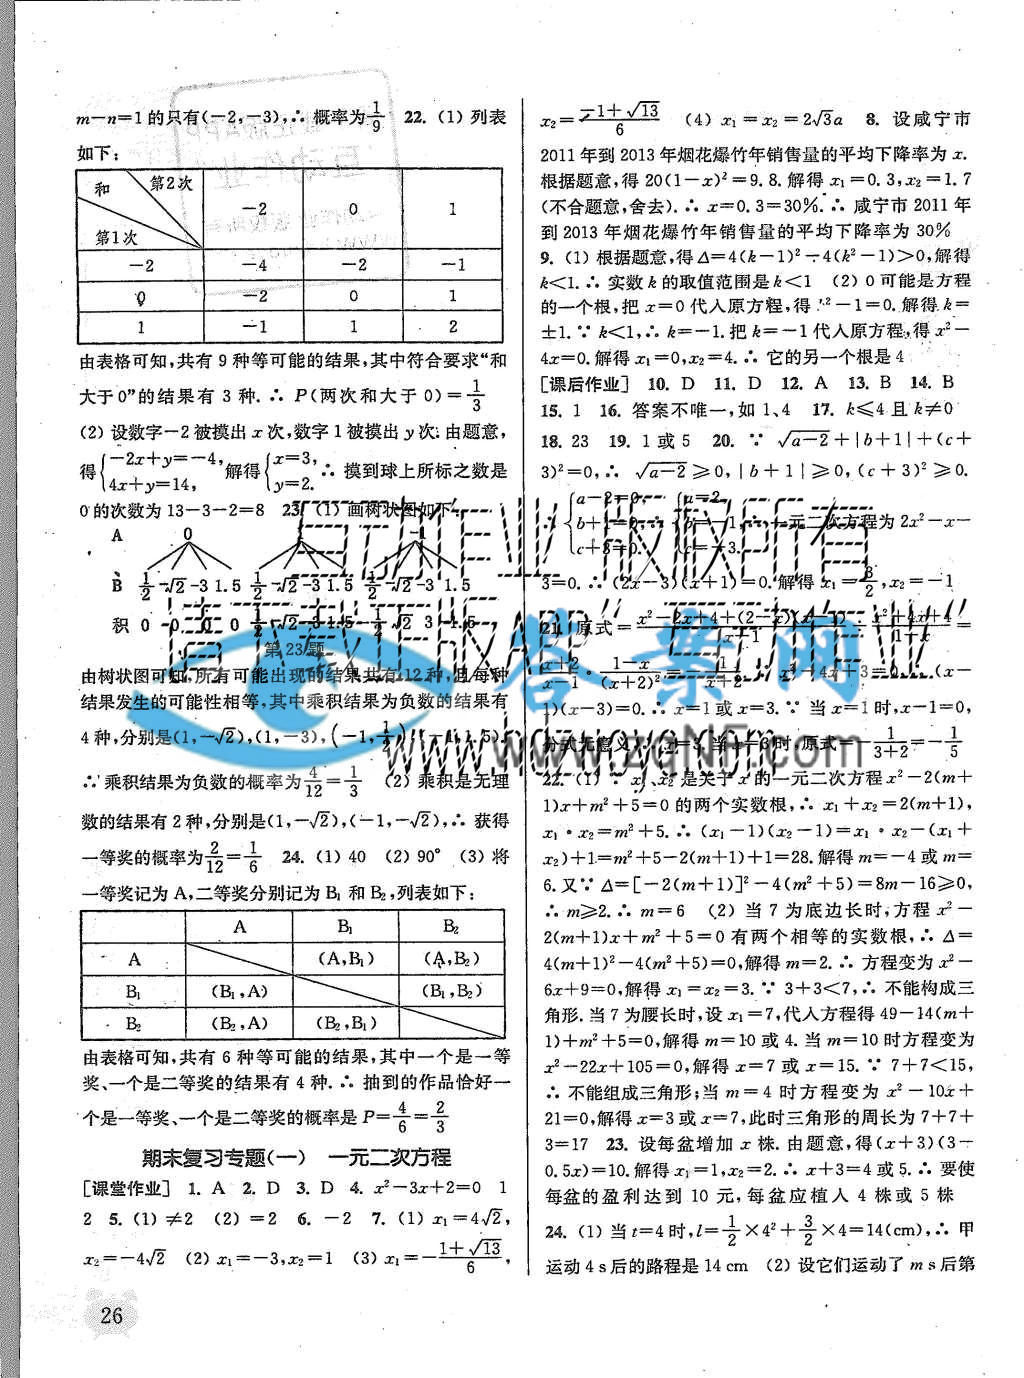 m－n=1的只有(－2,－3),∴ 概率为1/9 22. (1) 列表
如下:
和 第2次 第1次 －2 0 1
－2 －4 －2 －1
0 －2 0 1
1 －1 1 2
由表格可知,共有 9 种等可能的结果,其中符合要求“和
大于 0”的结果有 3 种.∴ P(两次和大于 0)=1/3
(2) 设数字－2被摸出 x 次,数字 1 被摸出 y 次.由题意,
得{－2x+y=－4, 4x+y=14, 解得{x=3, y=2. ∴ 摸到球上所标之数是
0 的次数为 13－3－2=8 23. (1) 画树状图如下:
A 0 1 －1
B 1/2 －√2 －3 1.5 1/2 －√2 －3 1.5 1/2 －√2 －3 1.5
积 0 0 0 0 1/2 －√2 －3 1.5 －1/2 √2 3 －1.5
第 23 题
由树状图可知,所有可能出现的结果共有 12 种,且每种
结果发生的可能性相等,其中乘积结果为负数的结果有
4 种,分别是(1,－√2),(1,－3),(－1,1/2),(－1,1.5).
∴ 乘积结果为负数的概率为4/12=1/3 (2) 乘积是无理
数的结果有 2 种,分别是(1,－√2),(－1,－√2),∴ 获得
一等奖的概率为2/12=1/6 24. (1) 40 (2) 90° (3) 将
一等奖记为 A,二等奖分别记为 B₁ 和 B₂,列表如下:
A B₁ B₂
A (A,B₁) (A,B₂)
B₁ (B₁,A) (B₁,B₂)
B₂ (B₂,A) (B₂,B₁)
由表格可知,共有 6 种等可能的结果,其中一个是一等
奖、一个是二等奖的结果有 4 种.∴ 抽到的作品恰好一
个是一等奖、一个是二等奖的概率是 P=4/6=2/3
期末复习专题(一) 一元二次方程
[课堂作业] 1. A 2. D 3. D 4. x²－3x+2=0 1
2 5. (1) ≠2 (2) =2 6. －2 7. (1) x₁=4√2,
x₂=－4√2 (2) x₁=－3,x₂=1 (3) x₁=－(1+√13)/6,
26
x₂=(－1+√13)/6 (4) x₁=x₂=2√3a 8. 设咸宁市
2011 年到 2013 年烟花爆竹年销售量的平均下降率为 x.
根据题意,得 20(1－x)²=9.8.解得 x₁=0.3,x₂=1.7
(不合题意,舍去).∴ x=0.3=30%.∴ 咸宁市 2011 年
到 2013 年烟花爆竹年销售量的平均下降率为 30%
9. (1) 根据题意,得 Δ=4(k－1)²－4(k²－1)>0,解得
k<1.∴ 实数 k 的取值范围是 k<1 (2) 0 可能是方程
的一个根,把 x=0 代入原方程,得 ²－1=0.解得 k=
±1.∵ k<1,∴ k=－1.把 k=－1 代入原方程,得 x²－
4x=0.解得 x₁=0,x₂=4.∴ 它的另一个根是 4
[课后作业] 10. D 11. D 12. A 13. B 14. B
15. 1 16. 答案不唯一,如 1、4 17. k≤4 且 k≠0
18. 23 19. 1 或 5 20. ∵ √(a－2)+|b+1|+(c+
3)²=0,∴ √(a－2)≥0,|b+1|≥0,(c+3)²≥0.
∴ {a－2=0, b+1=0, c+3=0. {a=2, b=－1, c=－3. ∴ 一元二次方程为 2x²－x－
3=0.∴ (2x－3)(x+1)=0.解得 x₁=3/2,x₂=－1
21. 原式=
x+2/x－1 · 1－x/(x+2)²= x²－4x+3=0 (x－
1)(x－3)=0.∴ x=1 或 x=3.∵ 当 x=1 时,x－1=0,
分式无意义,∴ x=3.当 x=3 时,原式=－1/(3+2)=－1/5
22. (1) ∵ x₁、x₂ 是关于 x 的一元二次方程 x²－2(m+
1)x+m²+5=0 的两个实数根,∴ x₁+x₂=2(m+1),
x₁·x₂=m²+5.∴ (x₁－1)(x₂－1)=x₁·x₂－(x₁+
x₂)+1=m²+5－2(m+1)+1=28.解得 m=－4 或 m=
6.又∵ Δ=[－2(m+1)]²－4(m²+5)=8m－16≥0,
∴ m≥2.∴ m=6 (2) 当 7 为底边长时,方程 x²－
2(m+1)x+m²+5=0 有两个相等的实数根,∴ Δ=
4(m+1)²－4(m²+5)=0,解得 m=2.∴ 方程变为 x²－
6x+9=0,解得 x₁=x₂=3.∵ 3+3<7,∴ 不能构成三
角形.当 7 为腰长时,设 x₁=7,代入方程得 49－14(m+
1)+m²+5=0,解得 m=10 或 4.当 m=10 时方程变为
x²－22x+105=0,解得 x=7 或 x=15.∵ 7+7<15,
∴ 不能组成三角形;当 m=4 时方程变为 x²－10x+
21=0,解得 x=3 或 x=7,此时三角形的周长为 7+7+
3=17 23. 设每盆增加 x 株.由题意,得(x+3)(3－
0.5x)=10.解得 x₁=1,x₂=2.∴ x+3=4 或 5.∴ 要使
每盆的盈利达到 10 元,每盆应植入 4 株或 5 株
24. (1) 当 t=4 时,l=1/2×4²+3/2×4=14(cm),∴ 甲
运动 4 s 后的路程是 14 cm (2) 设它们运动了 m s 后第